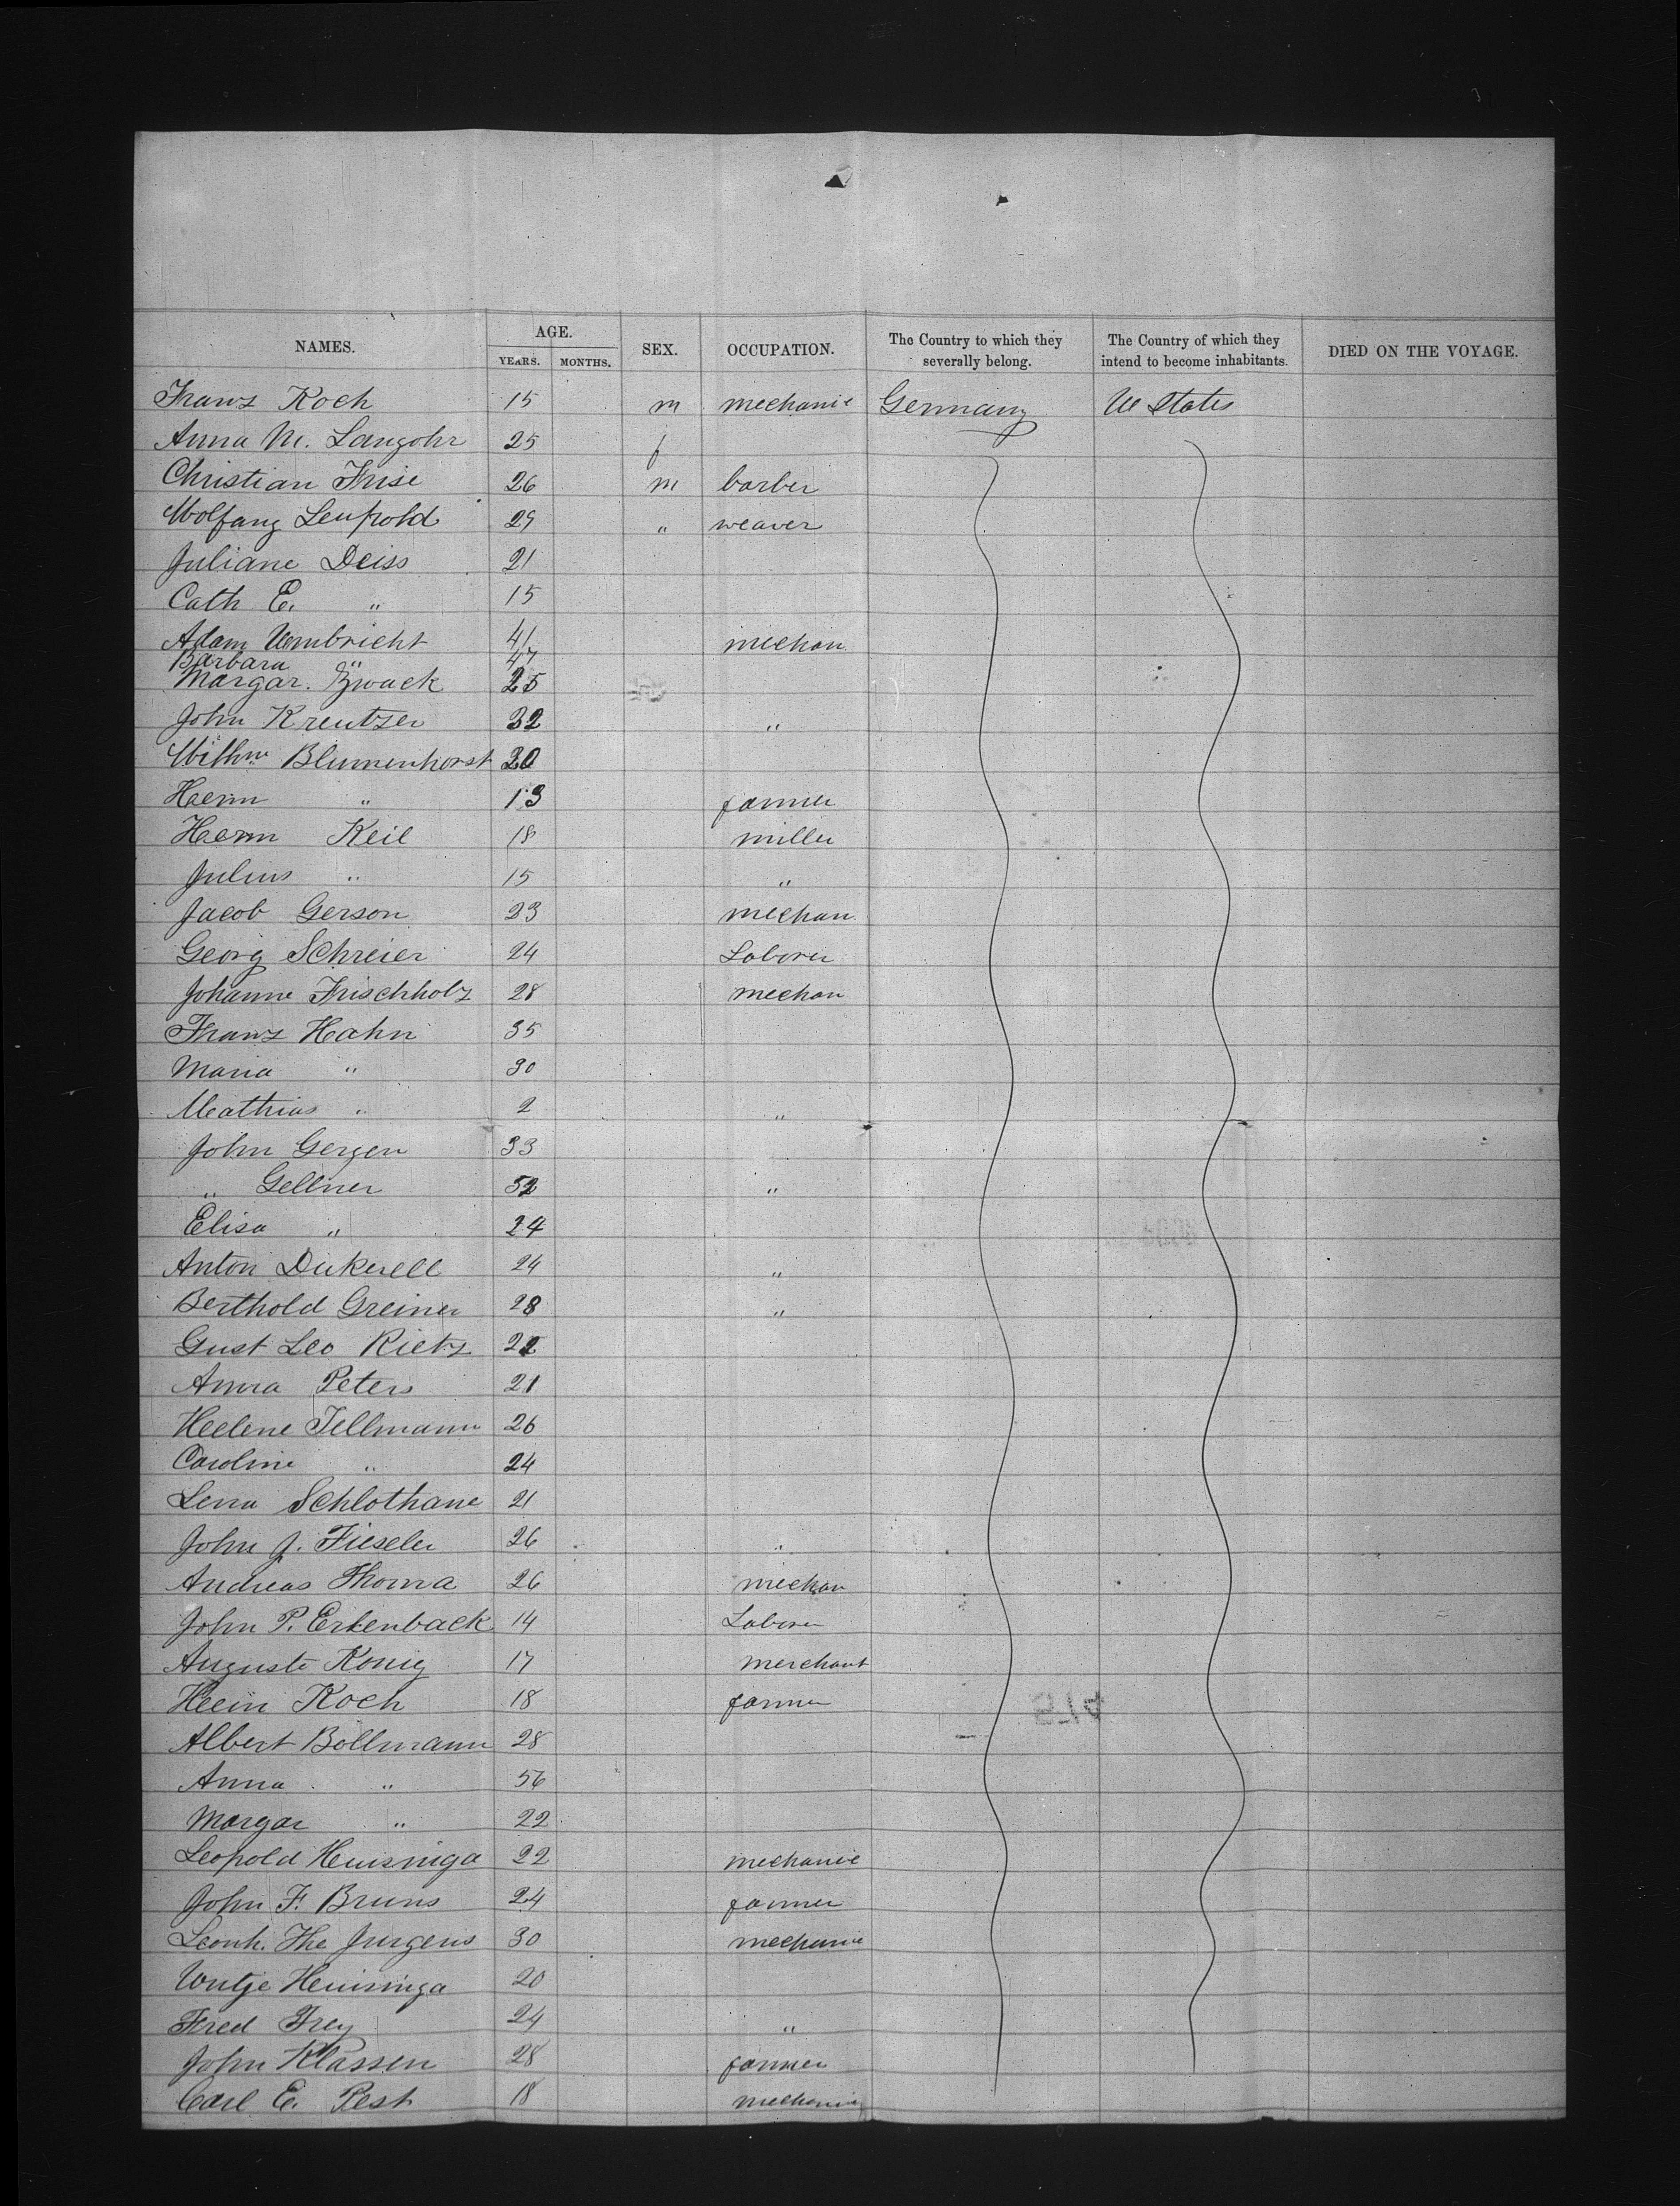 NAMES. AGE. SEX. OCCUPATION. The Country to which they severally belong. The Country of which they intend to become inhabitants. DIED ON THE VOYAGE.
YEARS. MONTHS.
Franz Koch 15 m mechanic Germany U States
Anna M. Langohr 25 f
Christian Frise 26 m barber
Wolfang Leupold 29 " weaver
Juliane Deiss 21
Cath E. " 15
Adam Umbricht 41 mechan.
Barbara " 47
Margar. Zwack 25
John Kreutzer 32 "
Wilhm Blumenhorst 30
Herm " 13 farmer
Herm Keil 18 miller
Julius " 15 "
Jacob Gerson 23 mechan.
Georg Schreier 24 Laborer
Johanne Frischholz 28 mechan
Franz Hahn 35
Maria " 30
Mathias " 2 "
John Gergen 33
" Gellner 52 "
Elisa " 24
Anton Dickerell 24 "
Berthold Greiner 28 "
Gust Leo Rietz 22
Anna Peters 21
Helene Tellmann 26
Caroline " 24
Lena Schlothane 21
John J. Fieseler 26 "
Andreas Thoma 26 mechan
John P. Erkenback 14 Laborer
Auguste Konig 17 merchant
Hein Koch 18 farmer
Albert Bollmann 28
Anna " 56
Margar " 22
Leopold Huisinga 22 mechanic
John F. Bruns 24 farmer
Leonh. The Jurgens 30 mechanic
Wutje Heuisinga 20
Fred Frey 24 "
John Klassen 28 farmer
Carl E. Pest 18 mechanic